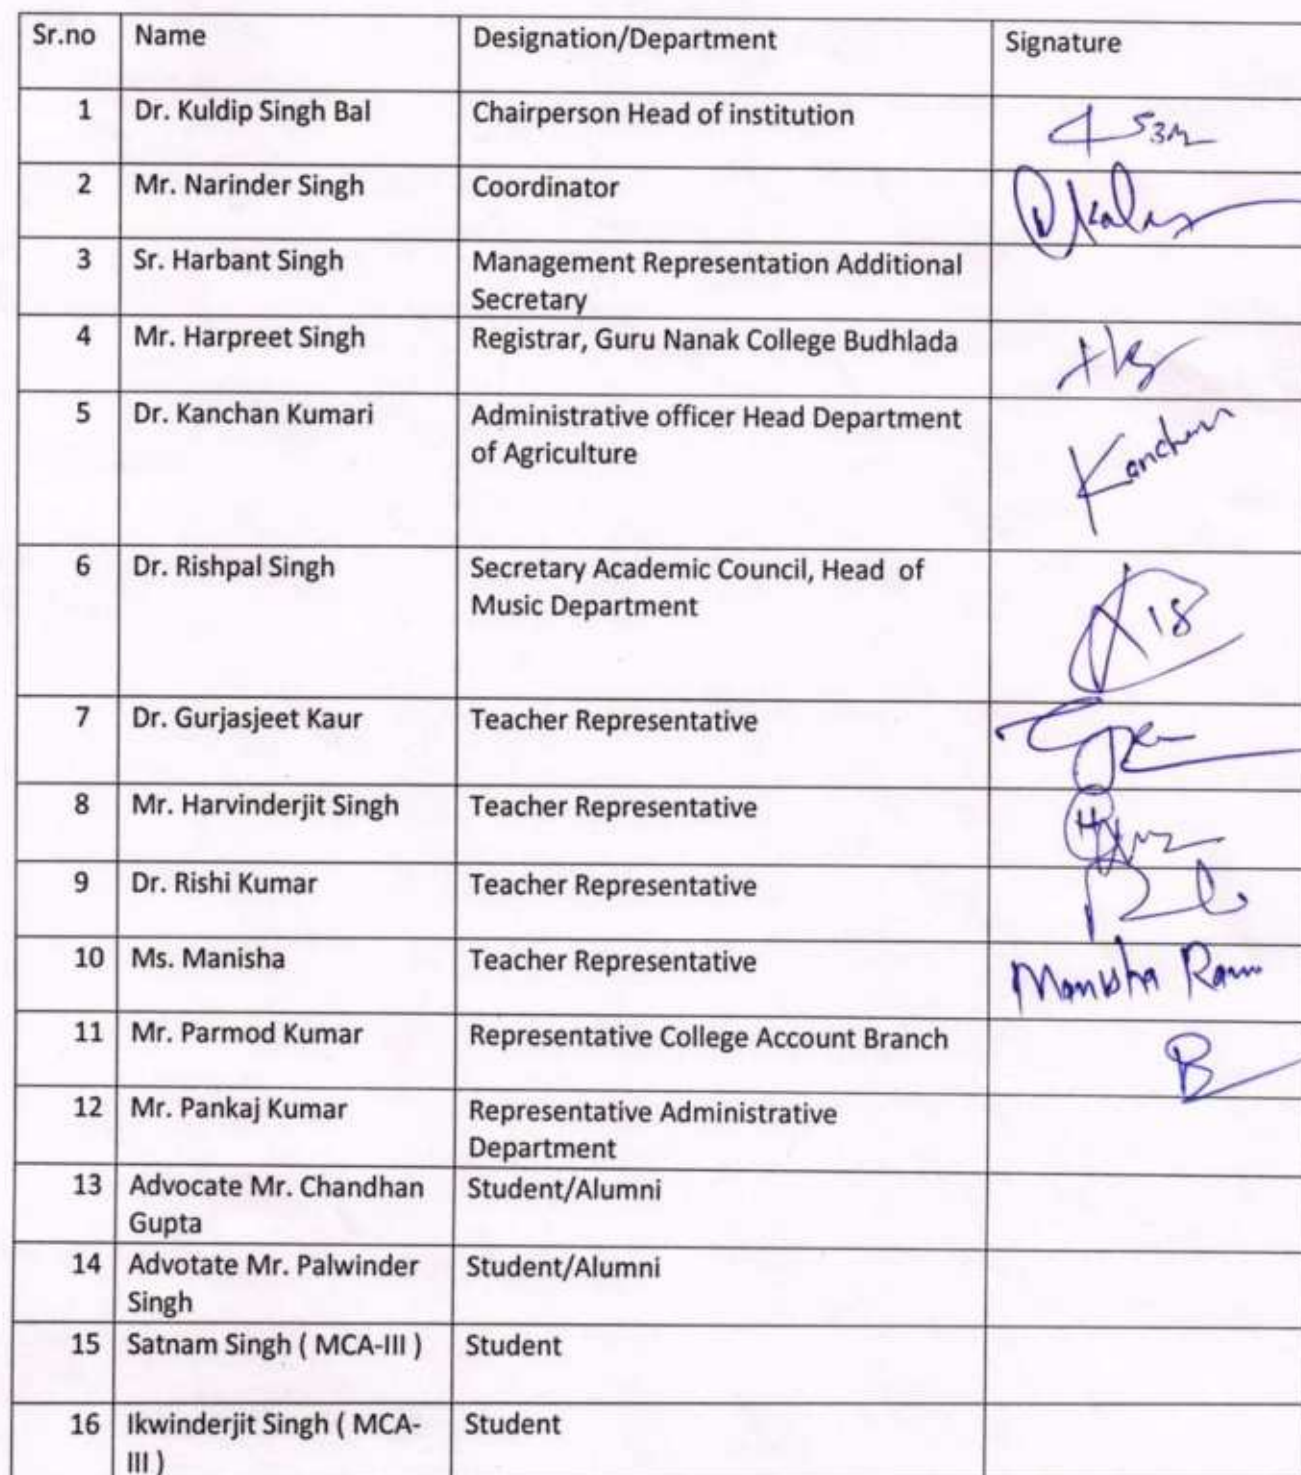 Sr.no Name Designation/Department Signature
1 Dr. Kuldip Singh Bal Chairperson Head of institution
2 Mr. Narinder Singh Coordinator
3 Sr. Harbant Singh Management Representation Additional
Secretary
4 Mr. Harpreet Singh Registrar, Guru Nanak College Budhlada
5 Dr. Kanchan Kumari Administrative officer Head Department Kanchan
of Agriculture
6 Dr. Rishpal Singh Secretary Academic Council, Head of
Music Department
7 Dr. Gurjasjeet Kaur Teacher Representative
8 Mr. Harvinderjit Singh Teacher Representative
9 Dr. Rishi Kumar Teacher Representative
10 Ms. Manisha Teacher Representative Manisha
11 Mr. Parmod Kumar Representative College Account Branch
12 Mr. Pankaj Kumar Representative Administrative
Department
13 Advocate Mr. Chandhan Student/Alumni
Gupta
14 Advotate Mr. Palwinder Student/Alumni
Singh
15 Satnam Singh ( MCA-III ) Student
16 Ikwinderjit Singh ( MCA- Student
III )